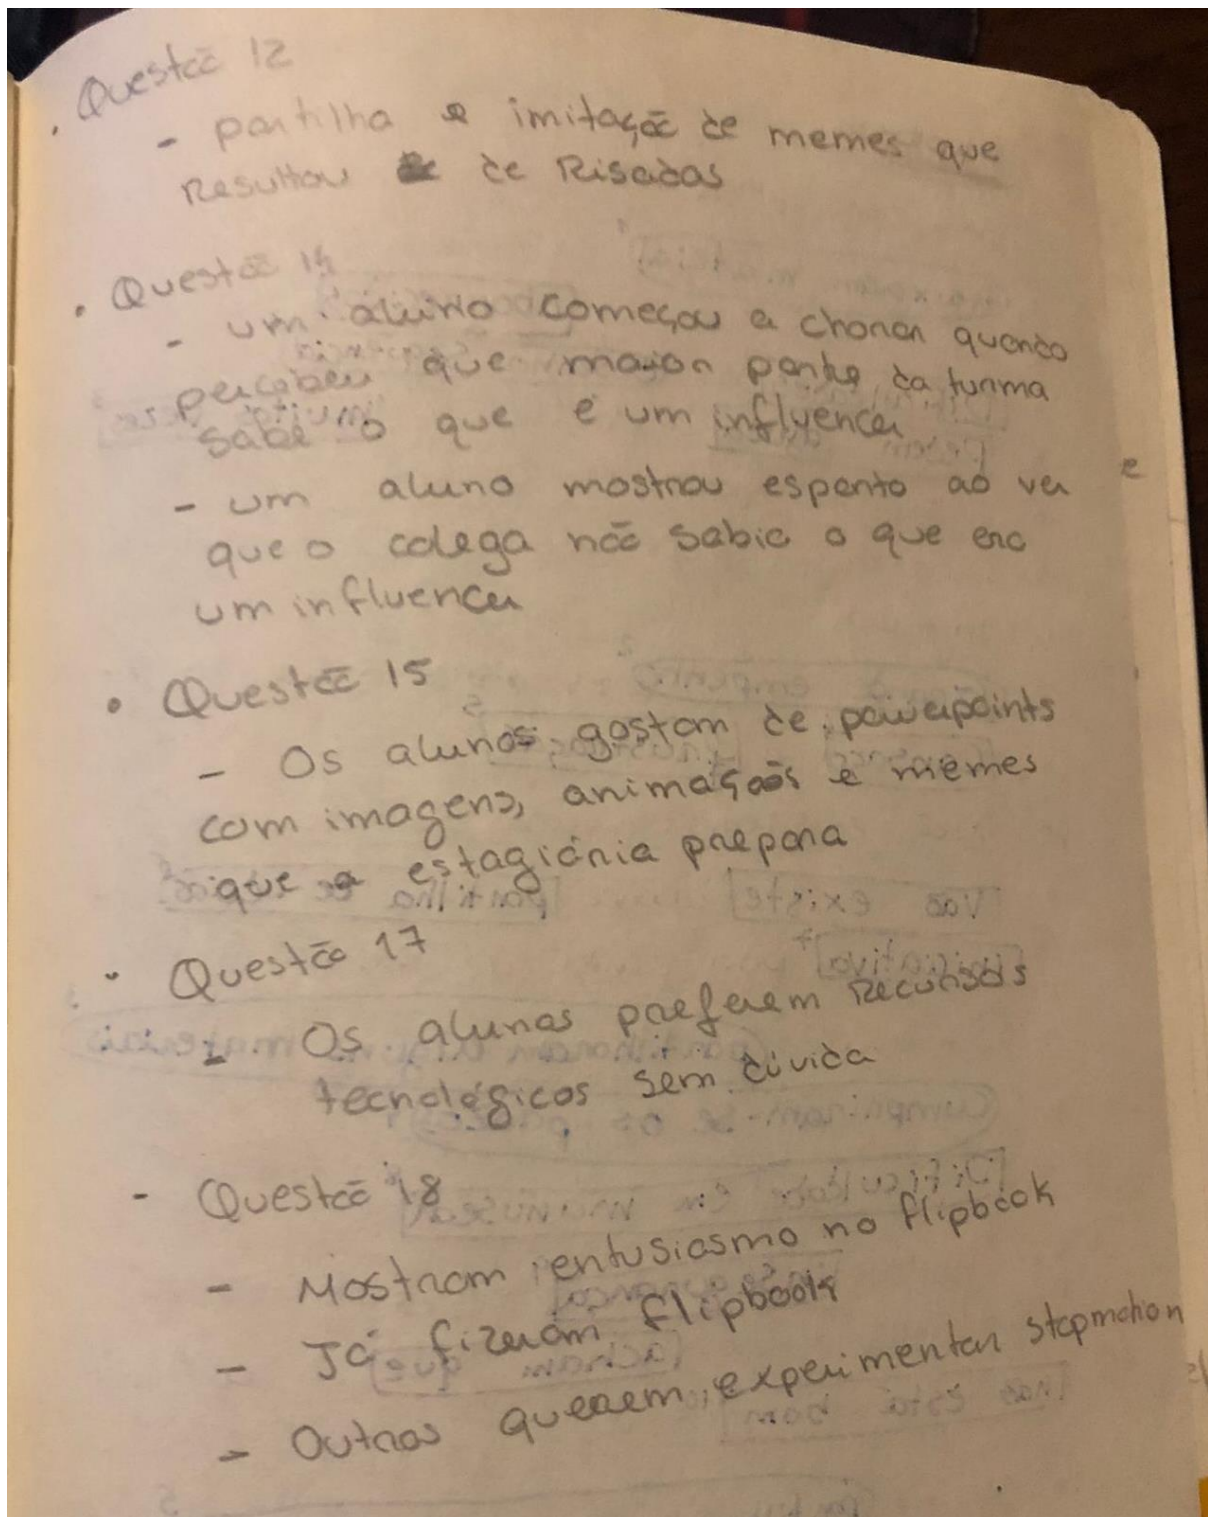 . Questão 12
- partilha e imitação de memes que
Resultou de Risadas
. Questão 14
- um aluno começou a chorar quando
percebeu que maior parte da turma
sabe o que é um influencer
- um aluno mostrou espanto ao ver
que o colega não sabia o que era
um influencer
• Questão 15
- Os alunos gostam de powerpoints
com imagens, animações e memes
que a estagiária prepara
- Questão 17
- Os alunos preferem Recursos
tecnológicos sem dúvida
- Questão 18
- Mostram entusiasmo no flipbook
- Já fizeram flipbook
- Outros querem experimentar stopmotion